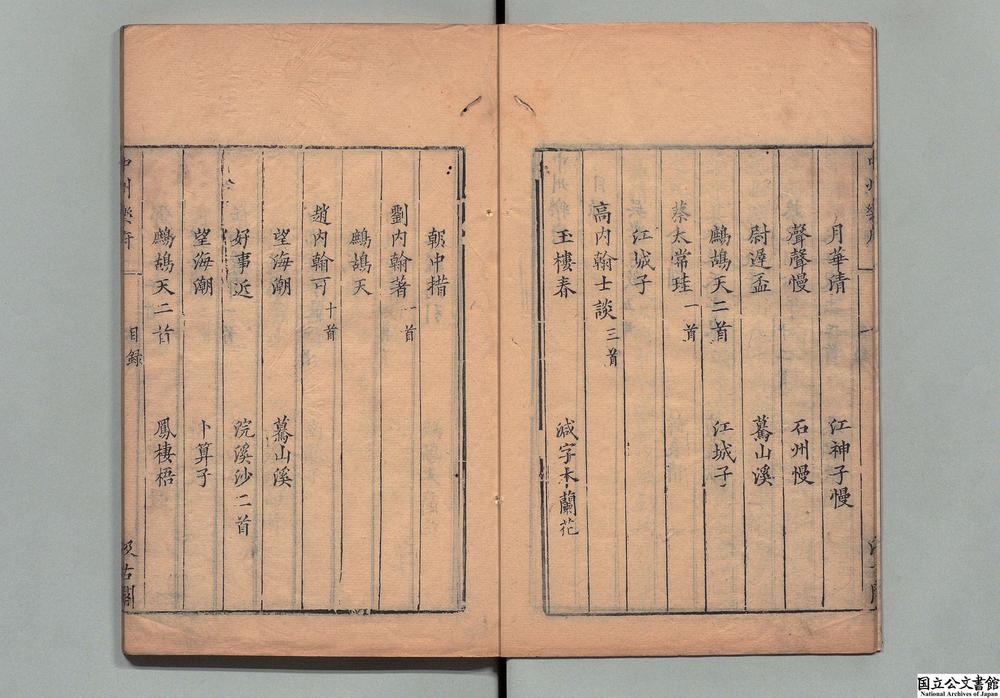 月華清 江神子慢
聲聲慢 石州慢
尉遲盃 驀山溪
鷓鴣天二首 江城子
蔡太常珪 一首
江城子
高内翰士談 三首
玉樓春 減字木蘭花
朝中措
劉内翰著 一首
鷓鴣天
趙内翰可 十首
望海潮 驀山溪
好事近 浣溪沙二首
望海潮 卜算子
鷓鴣天二首 鳳棲梧
中州樂府 目録 汲古閣
国立公文書館
National Archives of Japan